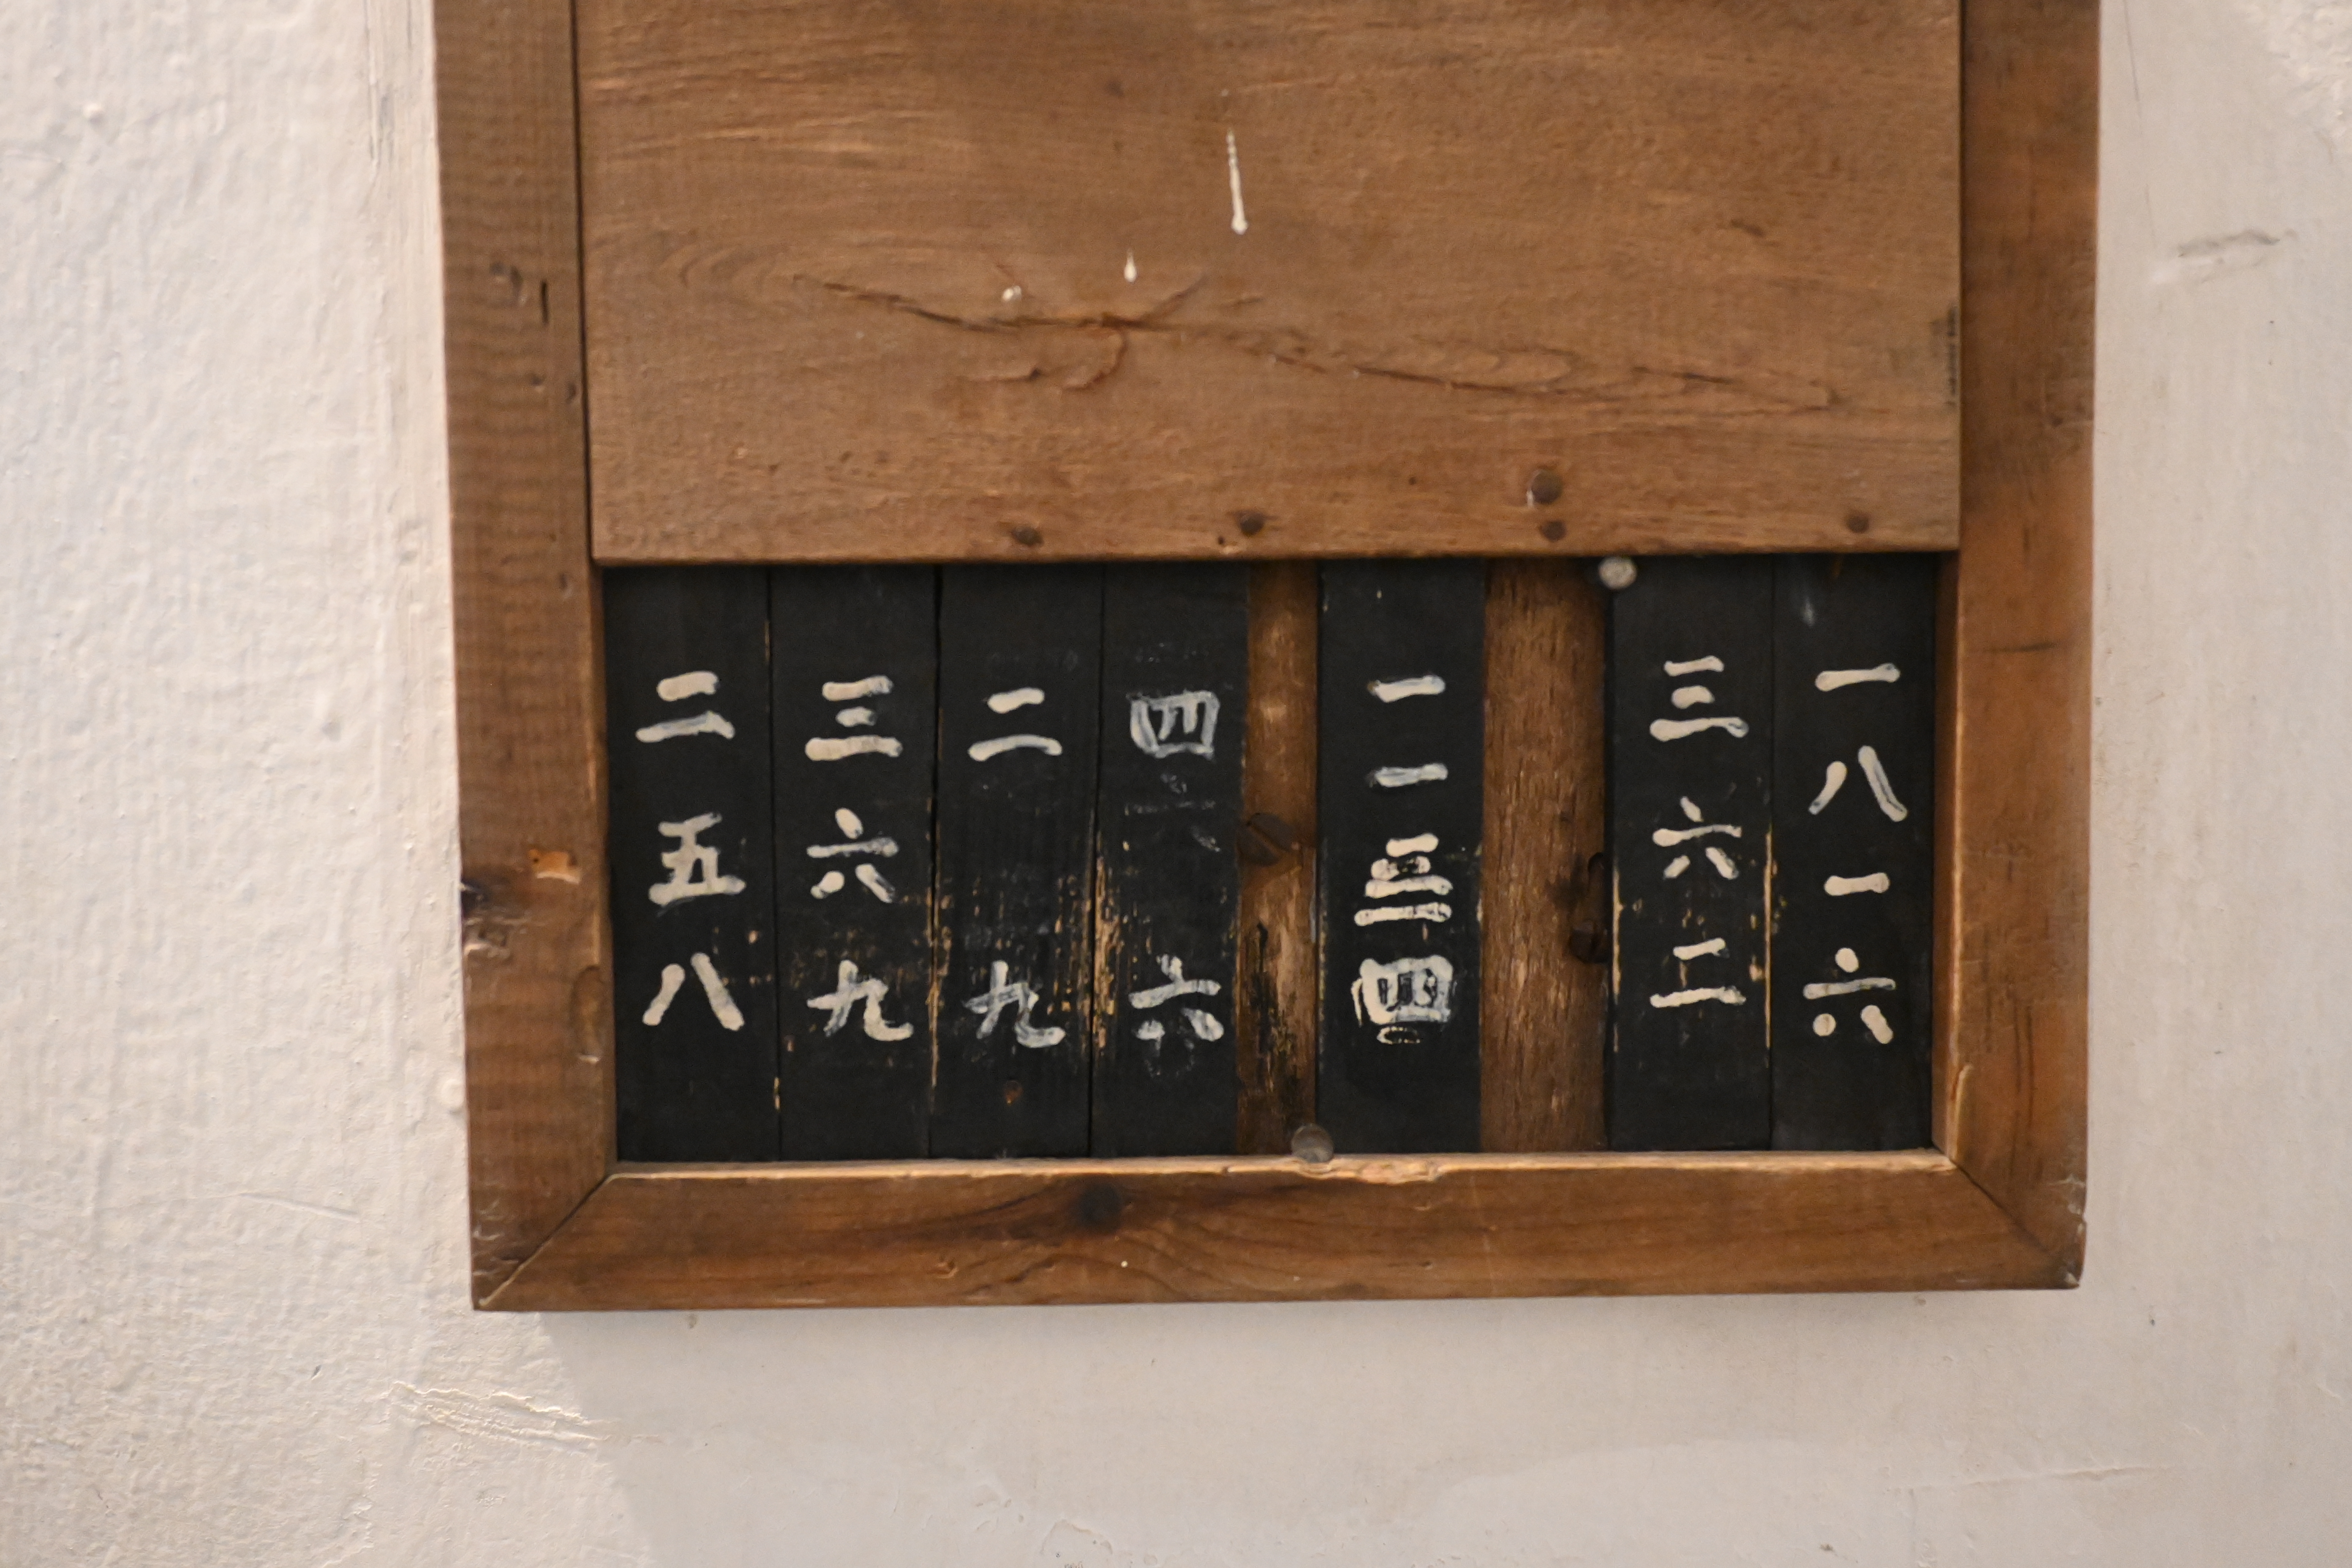 一八一六
三六二
一一三四
四六
二九
三六九
二五八